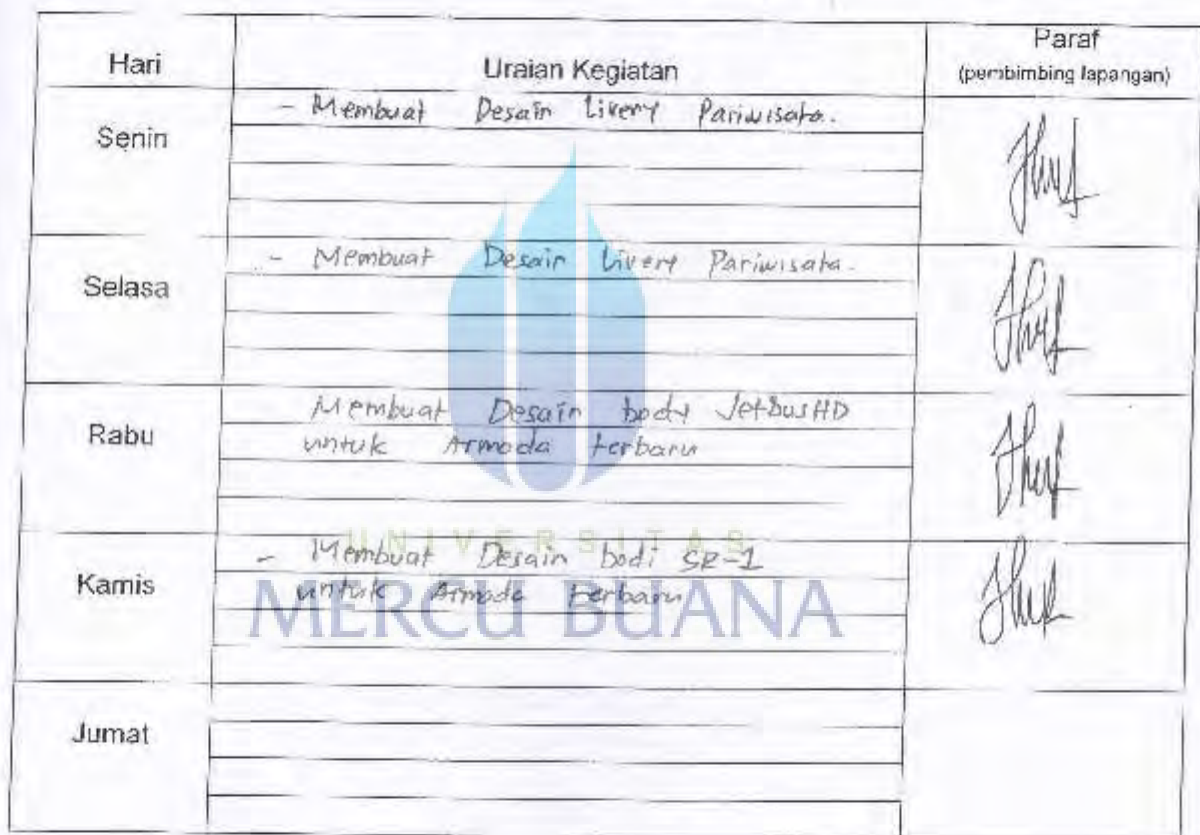 Hari
Uraian Kegiatan
Paraf
(pembimbing lapangan)
Senin
- Membuat Desain Livery Pariwisata.
Selasa
- Membuat Desain Livery Pariwisata.
Rabu
Membuat Desain body JetbusHD
untuk Armada terbaru
Kamis
- Membuat Desain bodi SR-1
untuk Armada terbaru
Jumat
UNIVERSITAS
MERCU BUANA